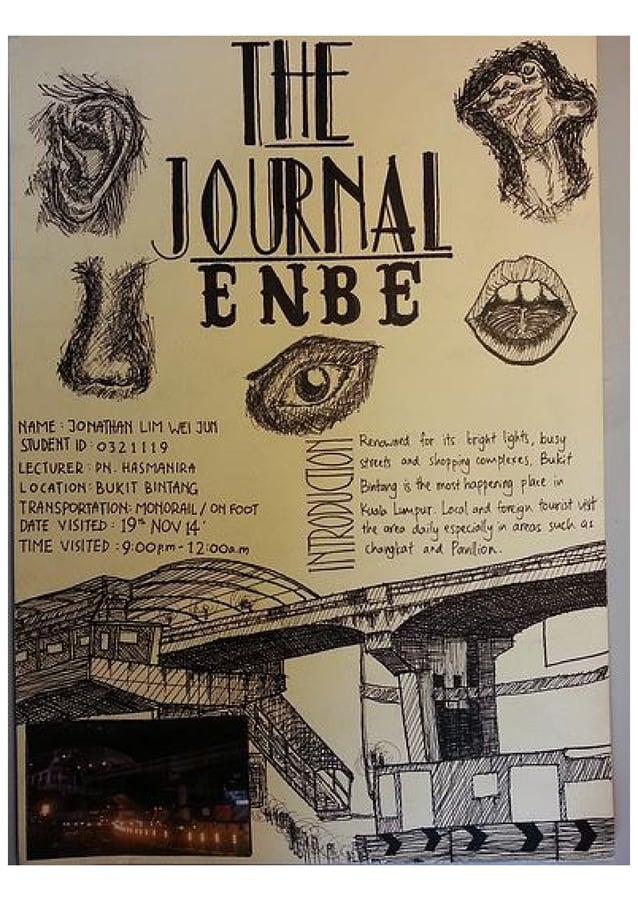 THE
JOURNAL
ENBE
NAME : JONATHAN LIM WEI JUN
STUDENT ID : 0321119
LECTURER : PN. HASMANIRA
LOCATION : BUKIT BINTANG
TRANSPORTATION: MONORAIL / ON FOOT
DATE VISITED : 19th NOV 14'
TIME VISITED : 9:00pm - 12:00am
INTRODUCTION
Renowned for its bright lights, busy
streets and shopping complexes, Bukit
Bintang is the most happening place in
Kuala Lumpur. Local and foreign tourist visit
the area daily especially in areas such as
changkat and Pavilion.